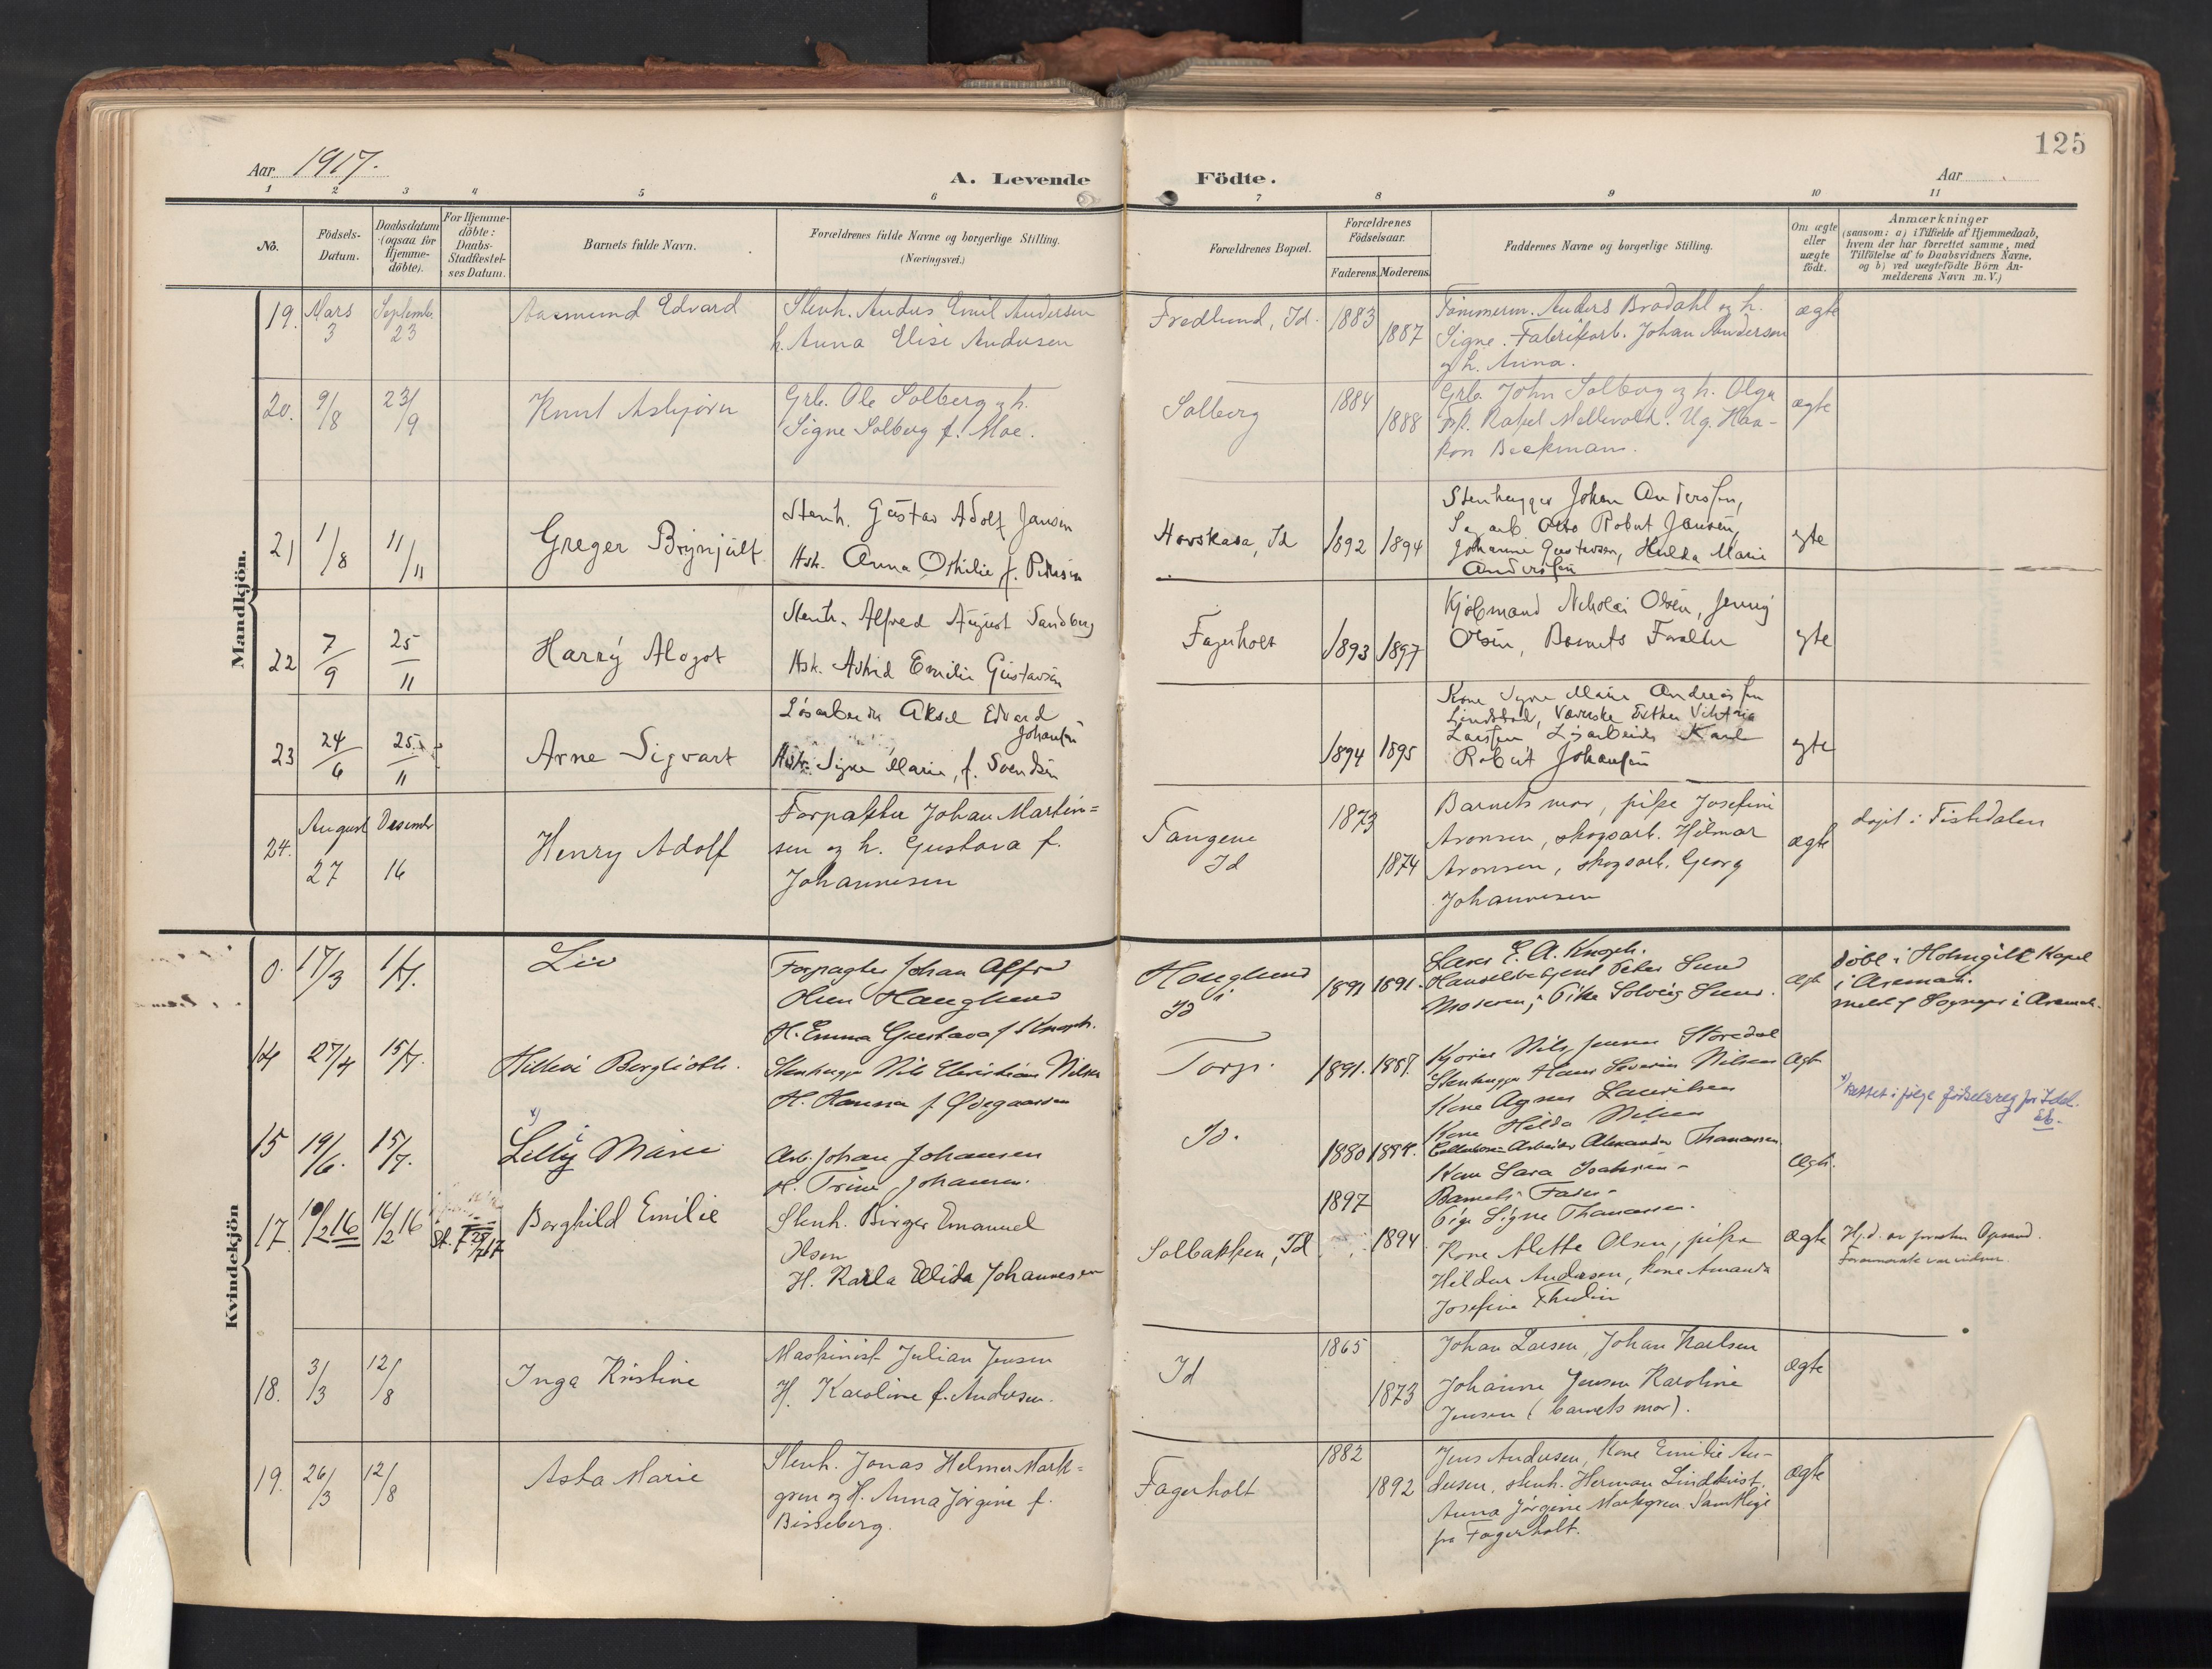 125
Aar 1917.
A. Levende Födte.
Aar
1 2 3 4 5 6 7 8 9 10 11
No.
Födsels-
Datum.
Daabsdatum
(ogsaa for
Hjemme-
döbte).
For Hjemme-
döbte:
Daabs-
Stadfæstel-
ses Datum.
Barnets fulde Navn.
Forældrenes fulde Navne og borgerlige Stilling.
(Næringsvei.)
Forældrenes Bopæl.
Forældrenes
Födselsaar.
Faderens. Moderens.
Faddernes Navne og borgerlige Stilling.
Om ægte
eller
uægte
födt.
Anmærkninger
(saasom: a) i Tilfælde af Hjemmedaab,
hvem der har forrettet samme, med
Tilföielse af to Daabsvidners Navne,
og b) ved uægtefödte Börn An-
melderens Navn m.V.)
Mandkjön.
19. Mars
3
September
23
Aasmund Edvard
Stenh. Anders Emil Andersen
h. Anna Elise Andersen
Fredlund, Id.
1883
1887
Tömmerm. Anders Bradahl og h.
Signe. Fabrikarb. Johan Andersen
og h. Anna.
ægte
20. 9/8 23/9
Knut Asbjørn
Grb. Ole Solberg og h.
Signe Solberg f. Moe.
Solberg
1884
1888
Grb. John Solberg og h. Olga
Frk. Rakel Mellevold. Ug. Haa-
kon Beckman.
ægte
21 1/8 11/11
Greger Brynjulf
Stenh. Gustav Adolf Jansen
Hst. Anna Othilie f. Petersen
Id 1892 1894
Stenhugger Johan Anderssen,
Otto Robert Jansen,
Johanne Gustavsen, Hulda Marie
Anderssen
egte
22 7/9 25/11
Harry Algot
Stenh. Alfred August Sandberg
Hst. Astrid Emilie Gustavsen
Fagerholt
1893 1897
Kjöbmand Nikolai Olsen, Jenny
Olsen, Barnets Forældre
egte
23 24/6 25/11
Arne Sigvart
Løsarbeider Aksel Edvard
Johansen
Hst. Signe Marie, f. Svendsen
1894 1895
Kone Signe Marie Andreassen
Lindstad, Væverske Esther Viktoria
Larssen Løsarbeider Karl
Robert Johansen
egte
24. August
27
Desember
16
Henry Adolf
Forpakter Johan Martin-
sen og h. Gustava f.
Johannesen
Tangene
Id
1873
1874
Barnets mor, pike Josefine
Aronsen, skogsarb. Hilmar
Aronsen, skogsarb. Georg
Johannesen
ægte
döpt i Tistedalen
Kvindekjön
0. 17/3 1/7.
Liv
Forpagter Johan Alfred
Olsen Hauglund
H. Emma Gustava f. Knoph.
Hauglund
i
Id
1891 1891.
Lars E. A. Knoph.
Handelsbetjent Peter Lund
Moderen, Pike Solveig Lund.
ægte
döbt i Holmgild Kapel
i Aremark.
meldt Sogneprest i Aremark.
14 27/4 15/7.
Hildur Bergljoth.
Stenhugger Nils Christian Nilsen
H. Hanna f. Ødegaarden
Torp.
1891. 1887.
Nils Jensen Storedal
Stenhugger Hans Severin Nilsen
Kone Agnes Lauritsen
Kone Hilda Nilsen
ægte
x)
15 19/6. 15/7.
Lilly Marie
Arb. Johan Johansen
H. Trine Johansen.
Id.
1880 1884.
Cellulose-Arbeider Alexander Thomassen
Kone Sara
Barnets Fader
Pige Signe Thomassen.
ægte.
x) Rettet i følge fødselsreg for Idd.
17. 10/2 16 16/2 16
St. 28/7 17
Borghild Emilie
Stenh. Birger Emanuel
Olsen
H. Karla Elida Johannesen
Solbakken, Id
1897
1894
Kone Alette Olsen, pike
Hildur Andersen, kone Amanda
Josefine Thulin
ægte
Hj.d. av Opsund.
18. 3/3 12/8
Inga Kristine
Maskinist Julian Jensen
H. Karoline f. Andersen.
Id
1865
1873
Johan Larsen, Johan Karlsen
Johanne Jensen Karoline
Jensen (barnets mor).
ægte
19. 26/3 12/8
Asta Marie
Stenh. Jonas Helmer Mark-
gren og H. Anna Jørgine f.
Bisseberg.
Fagerholt
1882
1892
Jens Andersen, kone Emilie An-
dersen, stenh. Herman Lindkvist,
Anna Jörgine Markgren. Samtlige
fra Fagerholt.
ægte